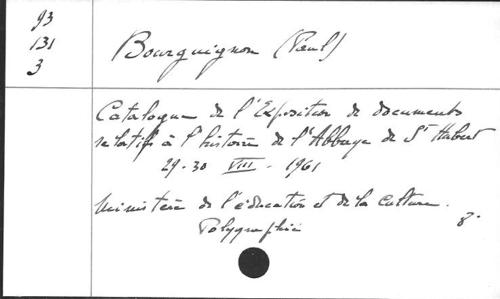 93
131
3
Bourguignon (Paul)
Catalogue de l'Exposition de documents
relatifs à l'histoire de l'Abbaye de St Hubert
29-30 VIII - 1961
Ministère de l'éducation et de la Culture.
Polygraphié 8°